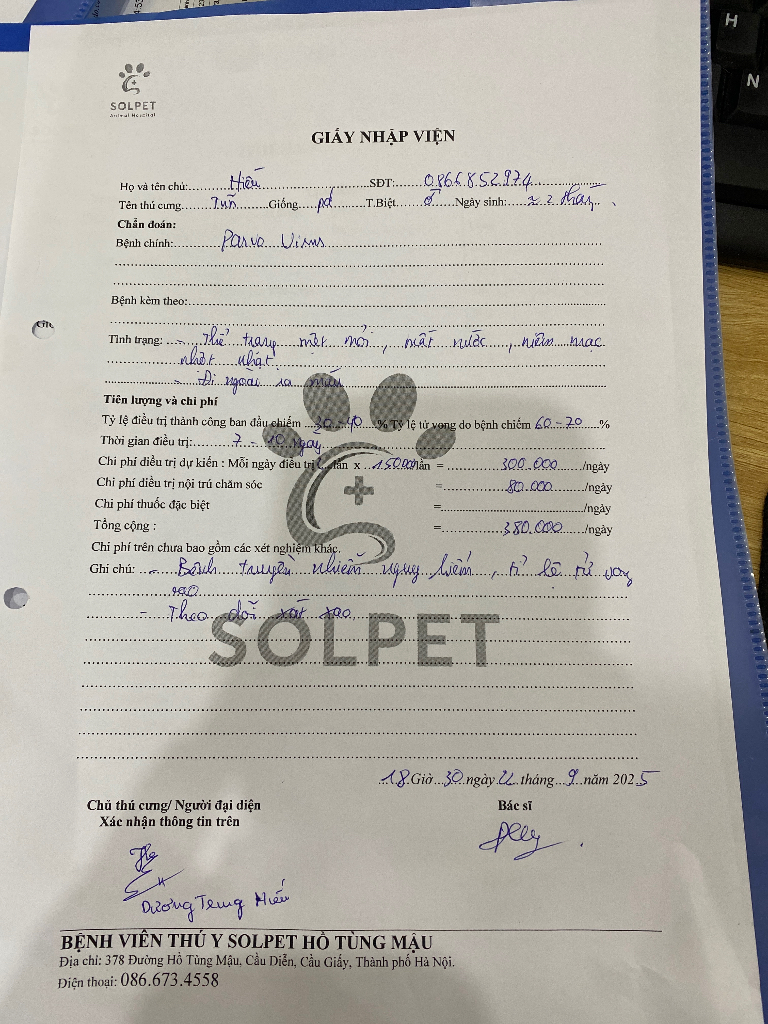 SOLPET
Animal Hospital
GIẤY NHẬP VIỆN
Họ và tên chủ:.....Hiếu.....SĐT:.....0866.852.974.....
Tên thú cưng.....Tun.....Giống.....pd.....T.Biệt.....♂.....Ngày sinh:.....≈ 2 tháng.....
Chẩn đoán:
Bệnh chính:.....Parvo Virus.....
Bệnh kèm theo:.....
Tình trạng: - Thể trạng mệt mỏi, mất nước, niêm mạc
nhợt nhạt
- Đi ngoài ra máu
Tiên lượng và chi phí
Tỷ lệ điều trị thành công ban đầu chiếm ...30-40...% Tỷ lệ tử vong do bệnh chiếm 60-70.....%
Thời gian điều trị:.....7 - 10 ngày
Chi phí điều trị dự kiến : Mỗi ngày điều trị 2 lần x 150.000/lần = .....300.000...../ngày
Chi phí điều trị nội trú chăm sóc =.....80.000...../ngày
Chi phí thuốc đặc biệt =...../ngày
Tổng cộng : =.....380.000...../ngày
Chi phí trên chưa bao gồm các xét nghiệm khác.
Ghi chú: - Bệnh truyền nhiễm nguy hiểm, tỉ lệ tử vong
cao
- Theo dõi sát sao
SOLPET
18 Giờ 30 ngày 22 tháng 9 năm 2025
Chủ thú cưng/ Người đại diện Bác sĩ
Xác nhận thông tin trên
Dương Trung Hiếu
BỆNH VIỆN THÚ Y SOLPET HỒ TÙNG MẬU
Địa chỉ: 378 Đường Hồ Tùng Mậu, Cầu Diễn, Cầu Giấy, Thành phố Hà Nội.
Điện thoại: 086.673.4558
H
N